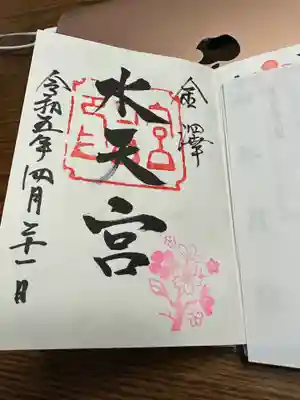 金澤
水天宮
令和五年四月二十一日